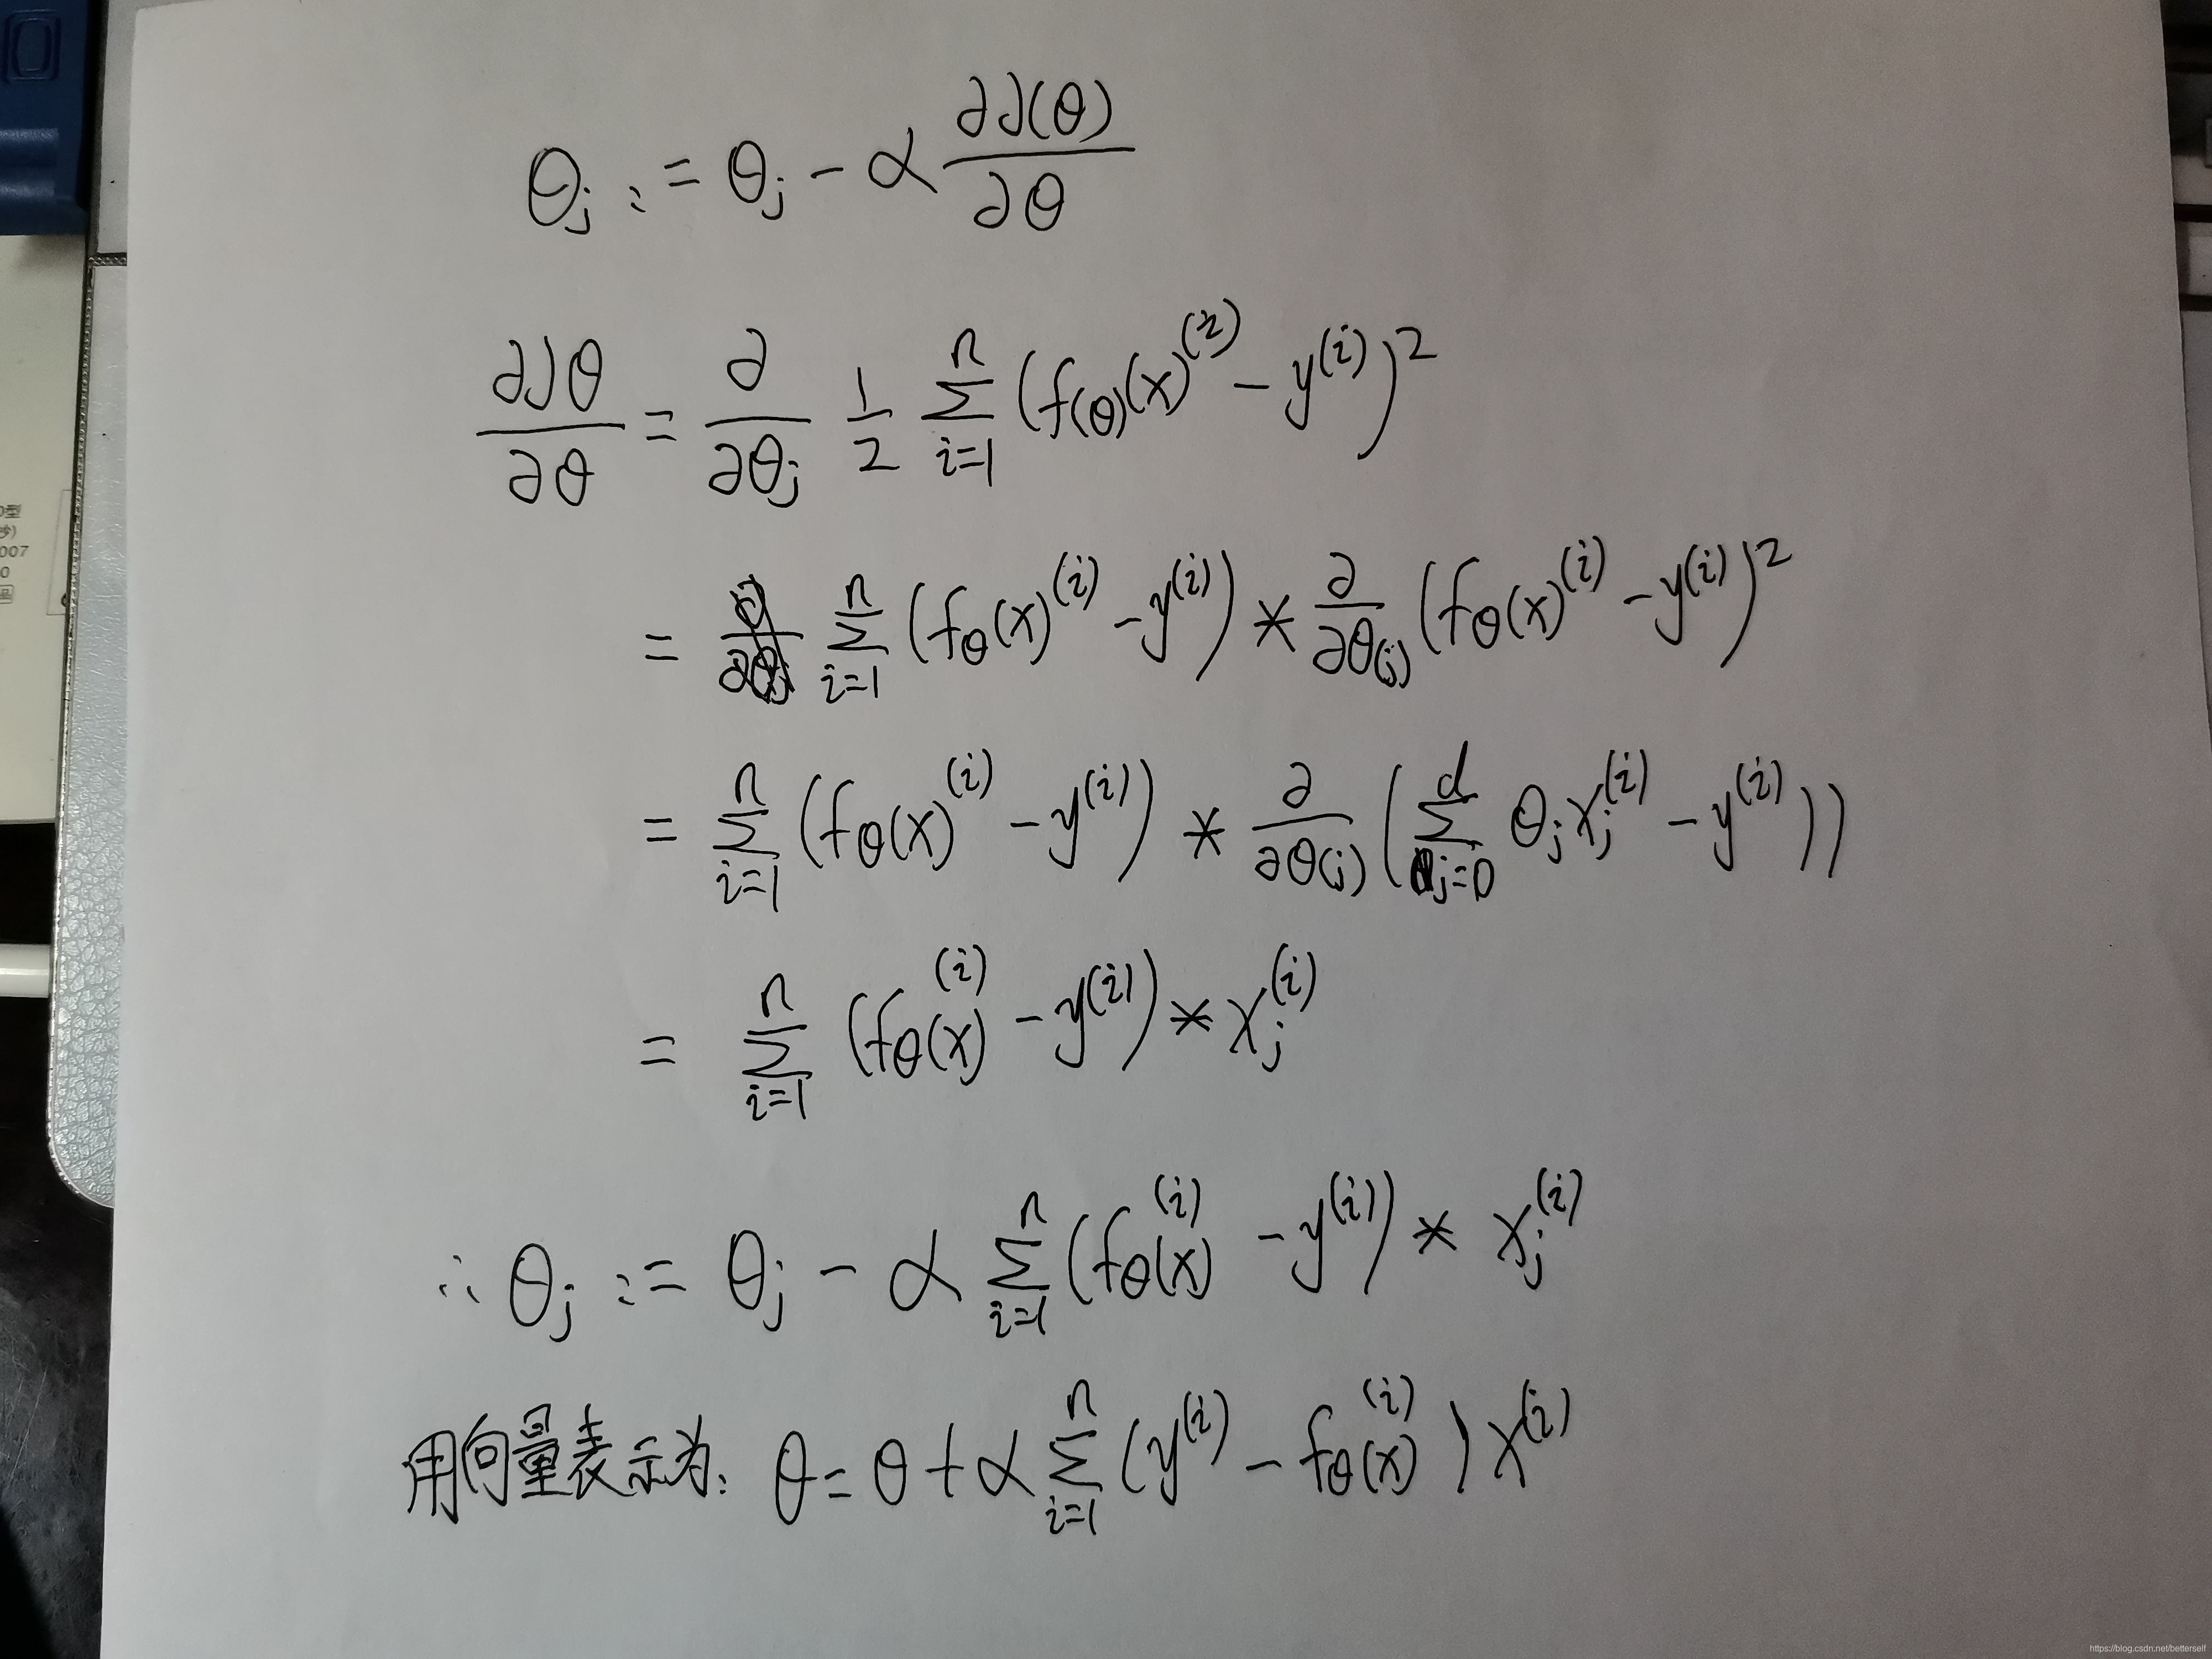 θj := θj - α ∂J(θ)/∂θ
∂Jθ/∂θ = ∂/∂θj 1/2 Σ_{i=1}^{n} (f(θ)(x)^(i) - y^(i))^2
= Σ_{i=1}^{n} (fθ(x)^(i) - y^(i)) * ∂/∂θ(j) (fθ(x)^(i) - y^(i))^2
= Σ_{i=1}^{n} (fθ(x)^(i) - y^(i)) * ∂/∂θ(j) (Σ_{j=0}^{d} θj xj^(i) - y^(i)))
= Σ_{i=1}^{n} (fθ(x)^(i) - y^(i)) * xj^(i)
∴ θj := θj - α Σ_{i=1}^{n} (fθ(x)^(i) - y^(i)) * xj^(i)
用向量表示为: θ = θ + α Σ_{i=1}^{n} (y^(i) - fθ(x)^(i)) x^(i)
型
007
0
品
https://blog.csdn.net/betterself